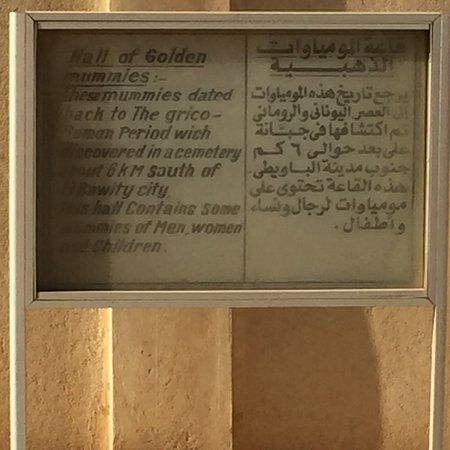 Hall of Golden
mummies:-
These mummies dated
back to The grico-
Roman Period wich
discovered in a cemetery
about 6 kM south of
El Bawity city.
This hall Contains some
mummies of Men, women
and Children.
قاعة المومياوات
الذهبية
يرجع تاريخ هذه المومياوات
إلى العصر اليونانى والرومانى
تم اكتشافها فى جبانة
على بعد حوالى ٦ كم
جنوب مدينة الباويطى.
هذه القاعة تحتوى على
مومياوات لرجال ونساء
وأطفال.